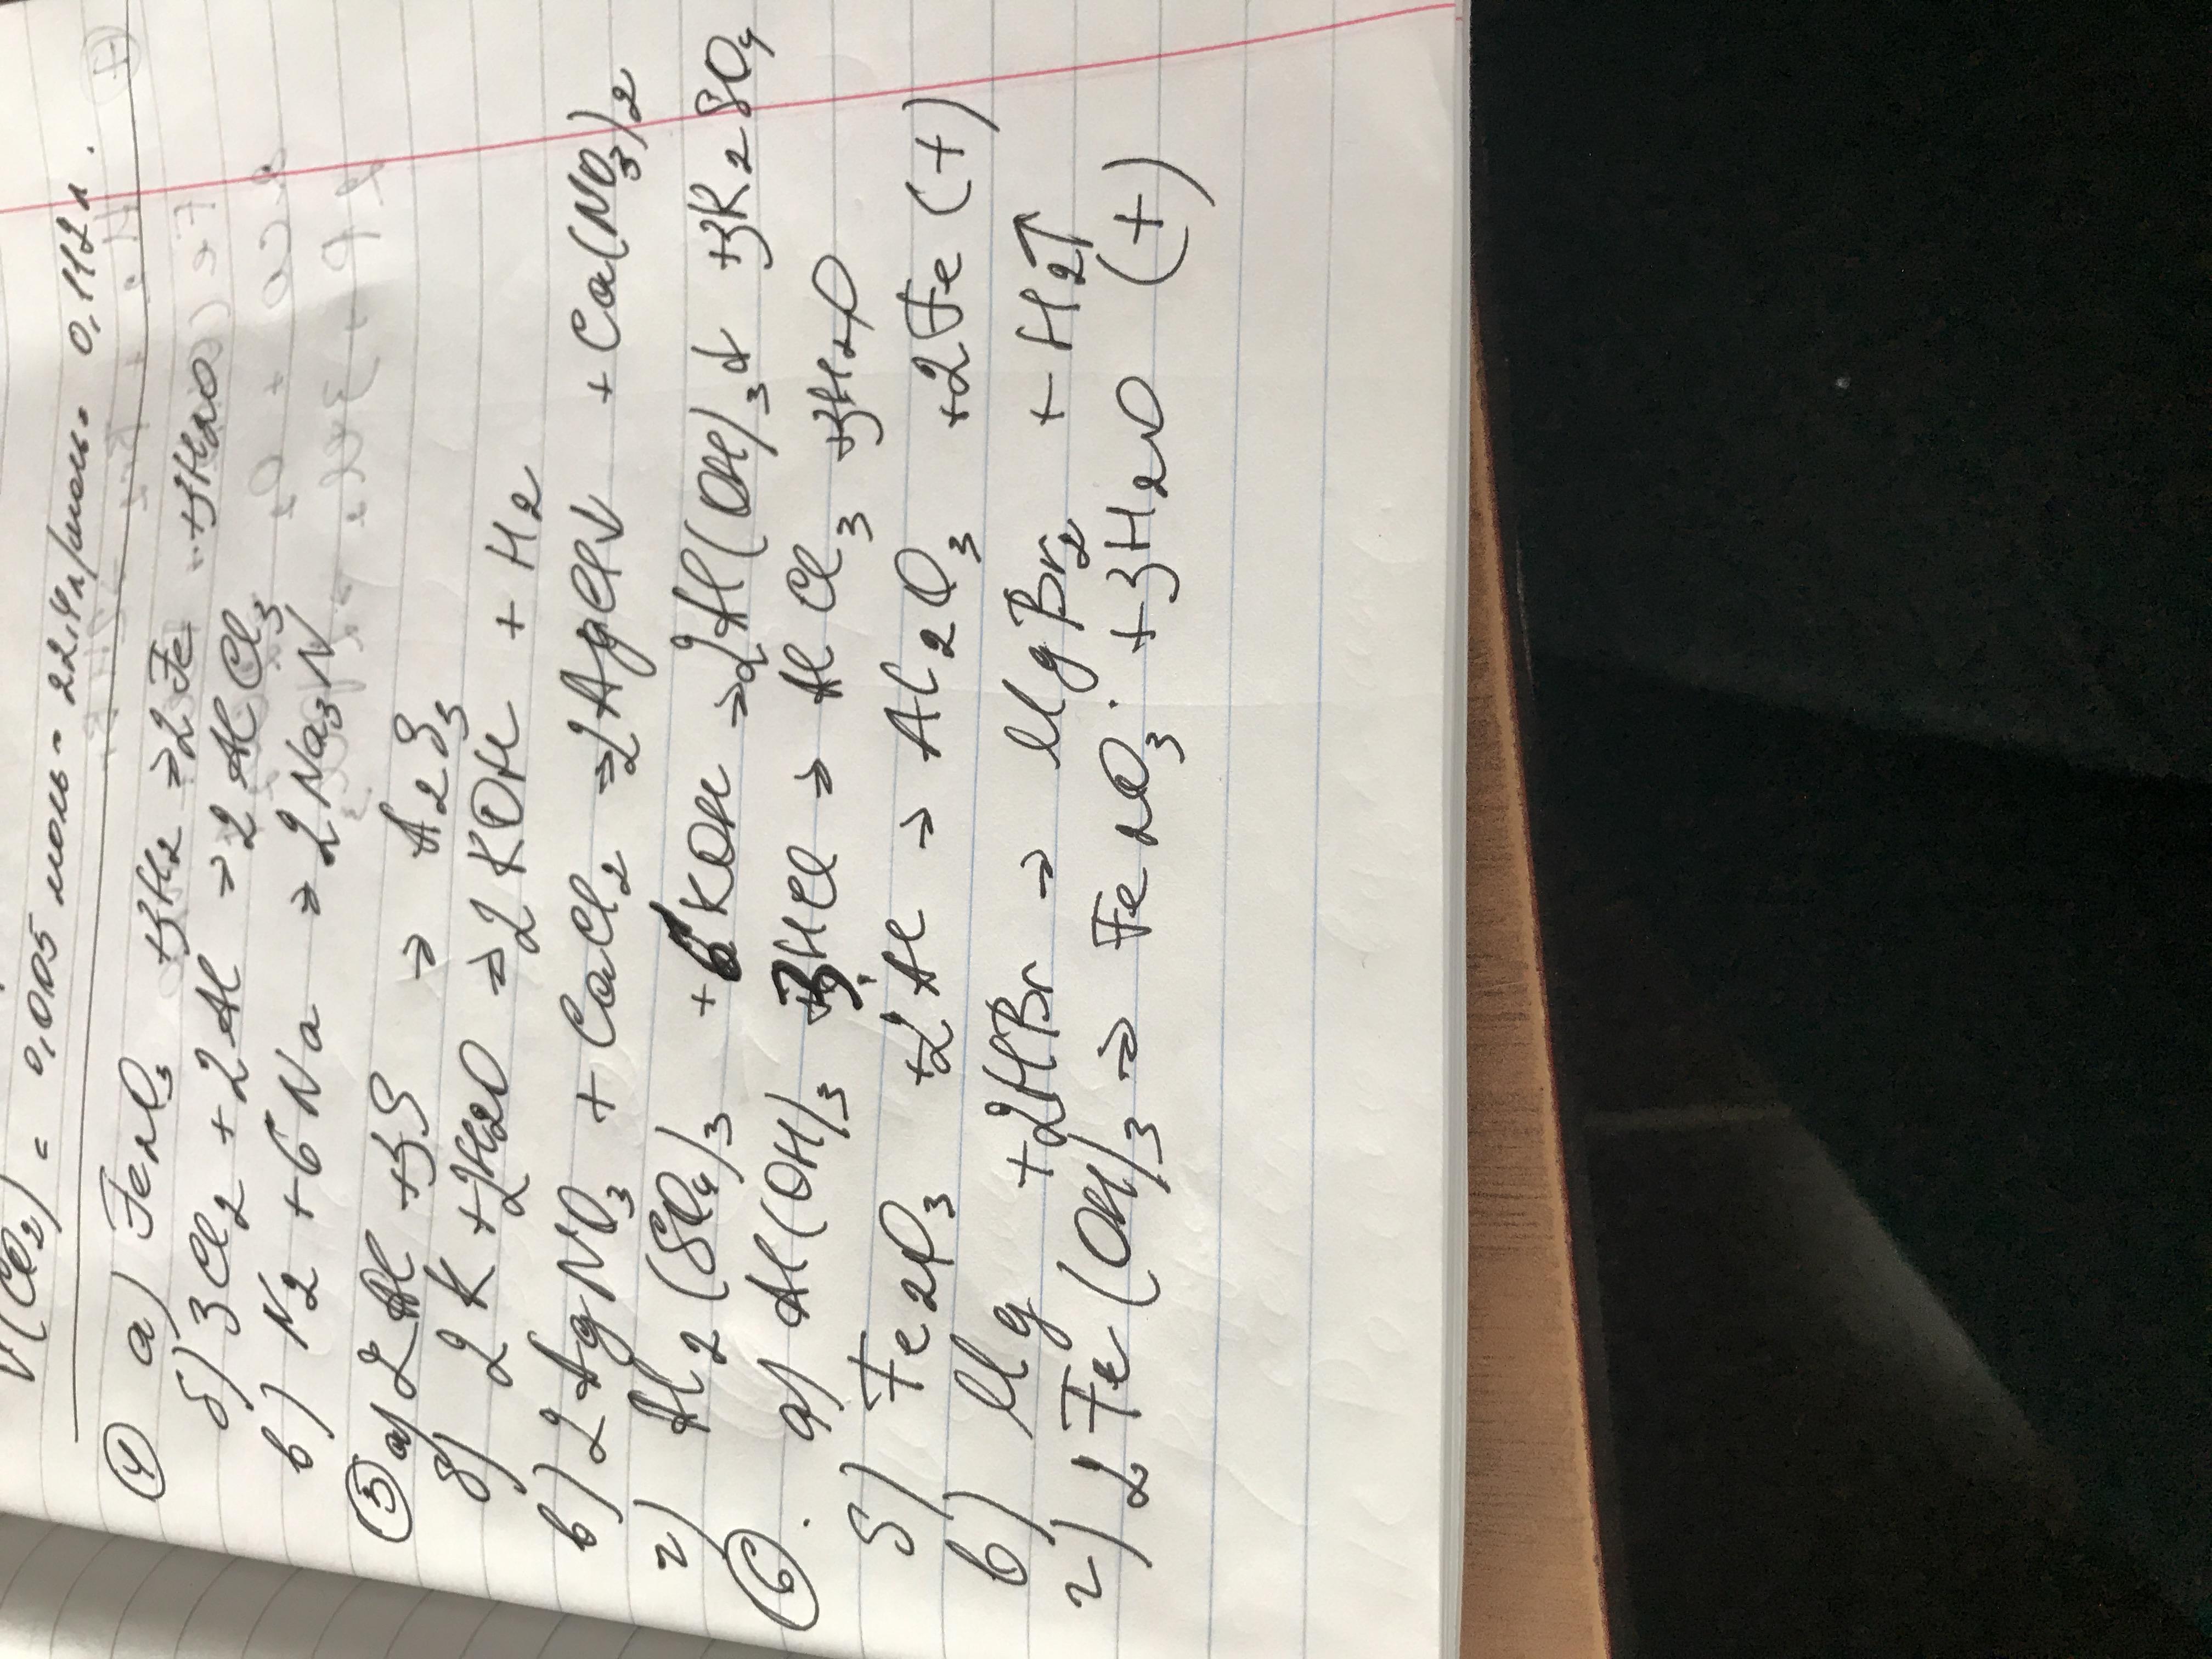 V(Cl2) = 0,005 моль · 22,4 л/моль = 0,112 л.
④ а) Fe2O3 +3H2 → 2Fe +3H2O
б) 3Cl2 + 2Al → 2AlCl3
в) N2 + 6Na → 2Na3N
⑤ а) 2Al +3S → Al2S3
б) 2K +2H2O → 2KOH + H2
в) 2AgNO3 + CaCl2 → 2AgCl↓ + Ca(NO3)2
г) Al2(SO4)3 + 6KOH → 2Al(OH)3↓ +3K2SO4
⑥. а) Al(OH)3 +3HCl → AlCl3 +3H2O
б) Fe2O3 +2Al → Al2O3 +2Fe (+)
в) Mg +2HBr → MgBr2 + H2↑
г) 2Fe(OH)3 → Fe2O3 +3H2O (+)